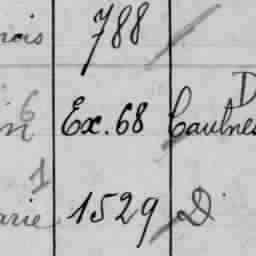 nois 788
D
6
in Ex. 68 Caulnes
1
arie 1529 D